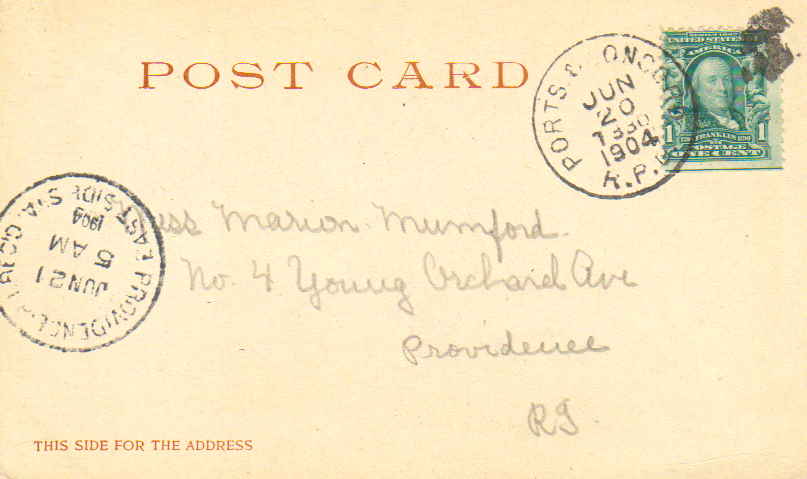 POST CARD
PORTS & CONCORD
JUN
20
1330
1904
R.P.O
UNITED STATES
AMERICA
1 FRANKLIN 1
POSTAGE
ONE CENT
PROVIDENCE
EAST SIDE STA.
1904
5 AM
JUN 21
Miss Marion Mumford.
No. 4 Young Orchard Ave
Providence
RI.
THIS SIDE FOR THE ADDRESS